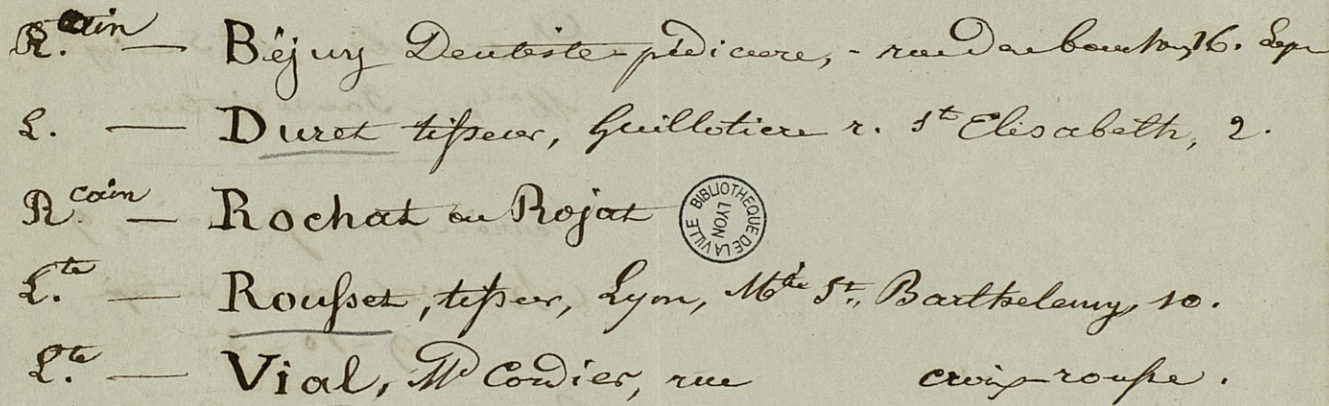 R.cain — Béjuy Dentiste-pédicure, - rue 16. Lyon
L. — Duret tisseur, Guillotiere r. St Elisabeth, 2.
R.cain — Rochat ou Rojat
BIBLIOTHEQUE DE LA VILLE LYON
L.te — Rousset, tisseur, Lyon, Mtée St. Barthelemy, 10.
L.te — Vial, Md Cordier, rue croix-rousse.